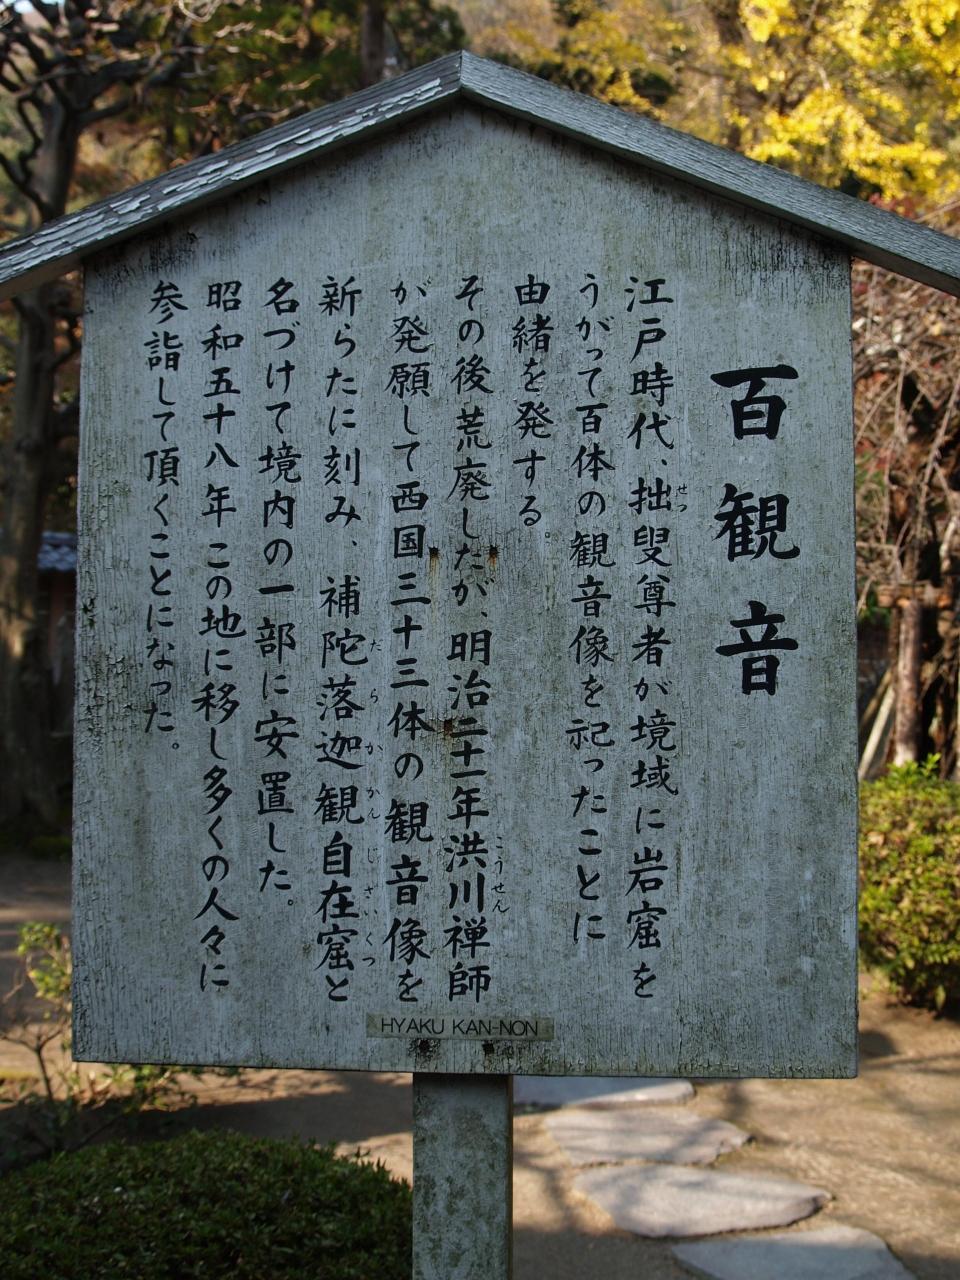 百観音
江戸時代、拙叟尊者が境域に岩窟を
せつ
うがって百体の観音像を祀ったことに
由緒を発する。
その後荒廃したが、明治二十一年洪川禅師
こうせん
が発願して西国三十三体の観音像を
新らたに刻み、補陀落迦観自在窟と
だらかかんじざいくつ
名づけて境内の一部に安置した。
昭和五十八年この地に移し多くの人々に
参詣して頂くことになった。
HYAKU KAN-NON